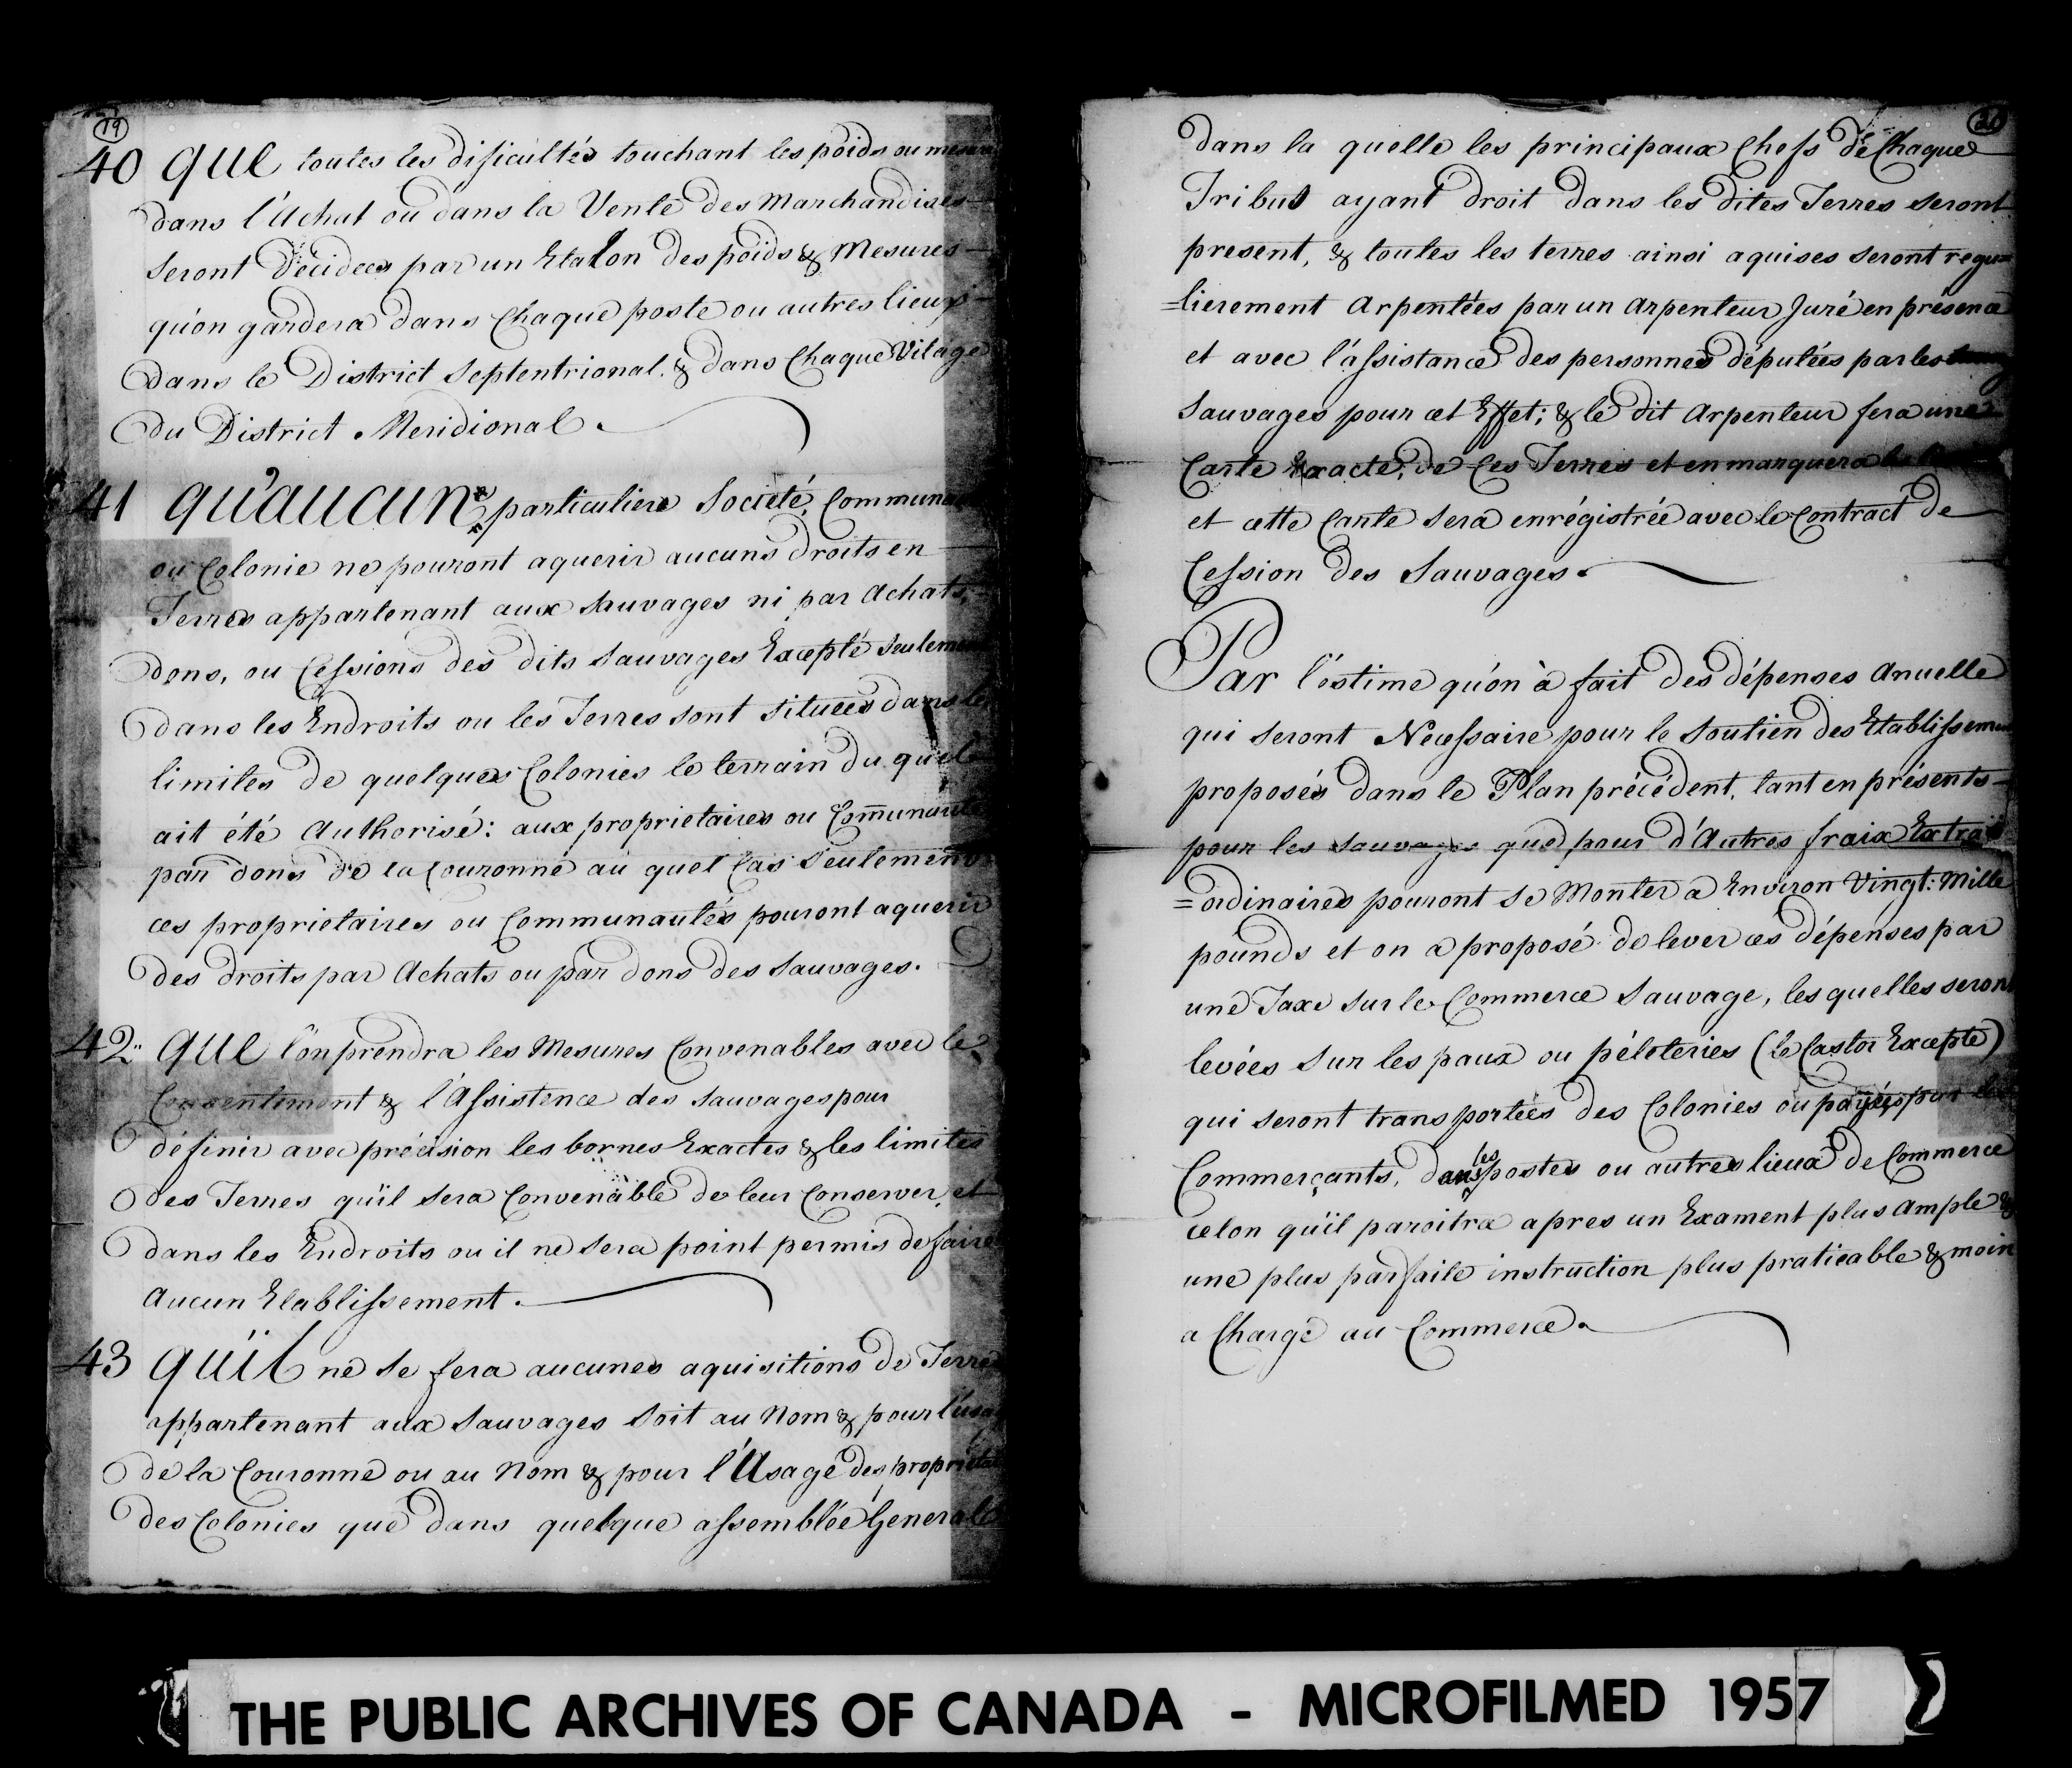 19
40 QUE toutes les dificultés touchant les poids ou mesure
dans l'Achat ou dans la Vente des Marchandises
seront Décidees par un Etalon des poids & Mesures
qu'on gardera dans Chaque poste ou autres lieux
dans le District Septentrional. & dans Chaque Vilage
du District Meridional.
41 QU'AUCUN particuliere Societé, Communauté
ou Colonie ne pouront aquerir aucuns droits en
Terres appartenant aux Sauvages ni par Achats,
dons, ou Cessions des dits Sauvages Excepté seulement
dans les Endroits ou les Terres sont situées dans les
limites de quelques Colonies le terrain du quel
ait été Authorisé: aux proprietaires ou Communauté
par dons de la Couronne au quel Cas Seulement
ces proprietaires ou Communautés pouront aquerir
des droits par Achats ou par dons des Sauvages.
42 QUE l'on prendra les Mesures Convenables avec le
Consentiment & l'Assistence des Sauvages pour
définir avec précision les bornes Exactes & les limites
des Terres qu'il sera Convenable de leur Conserver, et
dans les Endroits ou il ne sera point permis de faire
Aucun Etablissement.
43 QU'IL ne se fera aucunes aquisitions de Terres
appartenant aux Sauvages soit au Nom & pour l'usage
de la Couronne ou au Nom & pour l'Usage des propriétaires
des Colonies que dans quelque assemblée Generale
dans la quelle les principaux Chefs de Chaque
Tribus ayant droit dans les dites Terres seront
present, & toutes les terres ainsi aquises seront regu=
=lierement Arpentées par un Arpenteur Juré en présence
et avec l'assistance des personnes députées par les
Sauvages pour cet Effet; & le dit Arpenteur fera une
Carte Exacte, de Ces Terres et en marquera
et cette Carte sera enrégistrée avec le Contract de
Cession des Sauvages.
Par l'éstime qu'on à fait des dépenses Anuelle
qui seront Necessaire pour le Soutien des Etablissement
proposés dans le Plan précédent, tant en présents
pour les Sauvages que pour d'Autres fraix Extra
=ordinaires pouront se Monter a Environ Vingt: Mille
pounds et on a proposé de lever ces dépenses par
une Taxe sur le Commerce Sauvage, les quelles seront
levées sur les paux ou péleteries (le Castor Excepte)
qui seront transportées des Colonies ou payées par les
Commerçants, dans les postes ou autres lieux de Commerce
celon qu'il paroitra apres un Exament plus Ample &
une plus parfaite instruction plus praticable & moin
a Charge au Commerce.
THE PUBLIC ARCHIVES OF CANADA - MICROFILMED 1957